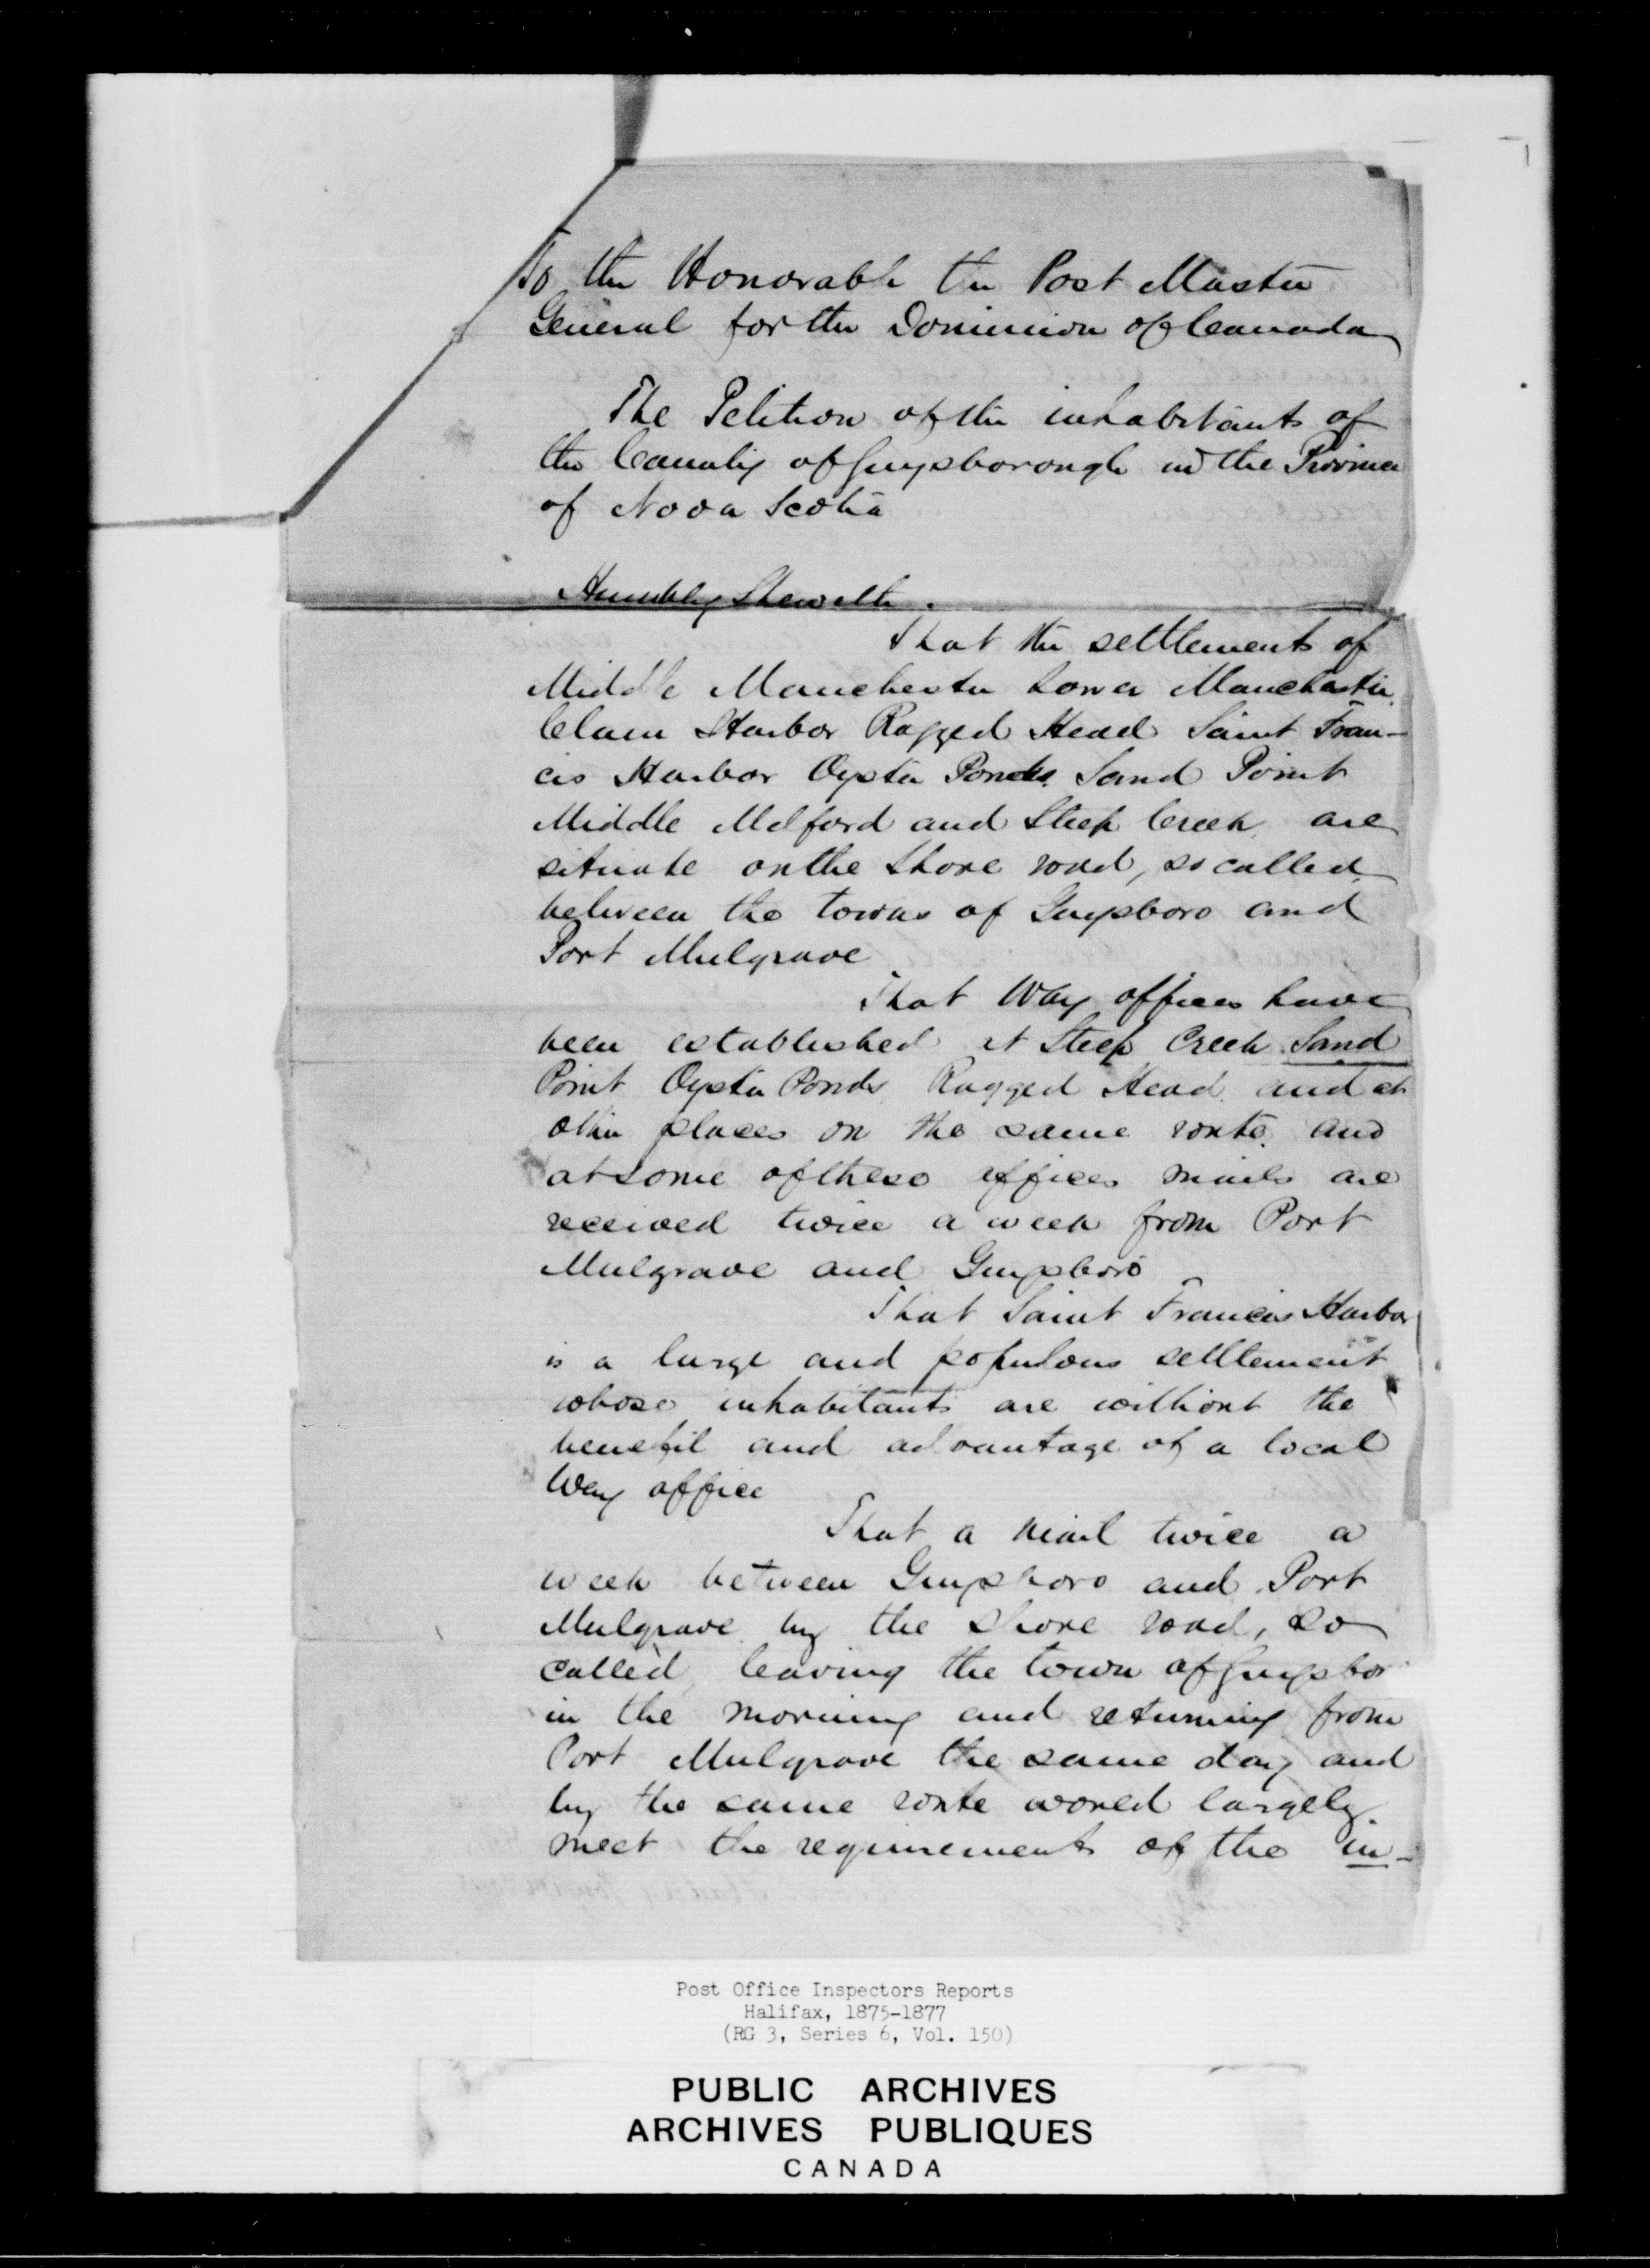 To the Honorable the Post Master
General for the Dominion of Canada
The Petition of the inhabitants of
the County of Guysborough in the Province
of Nova Scotia
Humbly Sheweth.
That the settlements of
Middle Manchester Lower Manchester
Clam Harbor Ragged Head Saint Fran-
cis Harbor Oyster Ponds Sand Point
Middle Melford and Steep Creek are
situate on the Shore road, so called
between the towns of Guysboro and
Port Mulgrave
That Way offices have
been established at Steep Creek Sand
Point Oyster Ponds Ragged Head and at
other places on the same route and
at some of these offices mails are
received twice a week from Port
Mulgrave and Guysboro
That Saint Francis Harbor
is a large and populous settlement
whose inhabitants are without the
benefit and advantage of a local
Way office
That a mail twice a
week between Guysboro and Port
Mulgrave by the Shore road, so
called, leaving the town of Guysbor
in the morning and returning from
Port Mulgrave the same day and
by the same route would largely
meet the requirements of the in-
Post Office Inspectors Reports
Halifax, 1875-1877
(RG 3, Series 6, Vol. 150)
PUBLIC ARCHIVES
ARCHIVES PUBLIQUES
CANADA